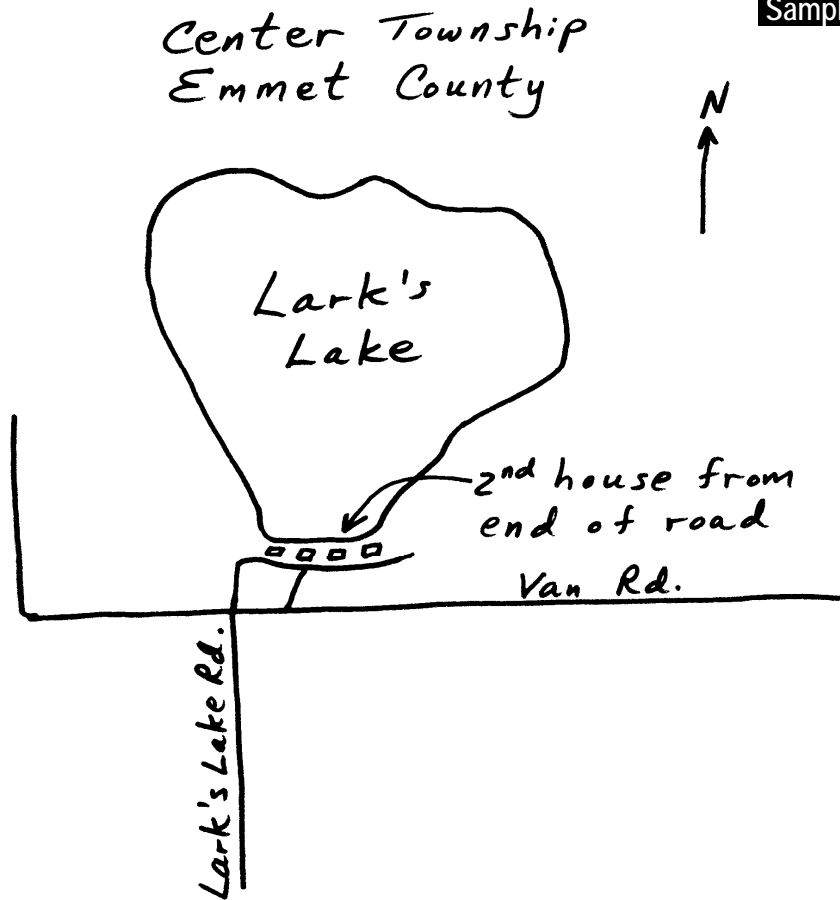 Sampl
Center Township
Emmet County
N
Lark's
Lake
2nd house from
end of road
Van Rd.
Lark's Lake Rd.